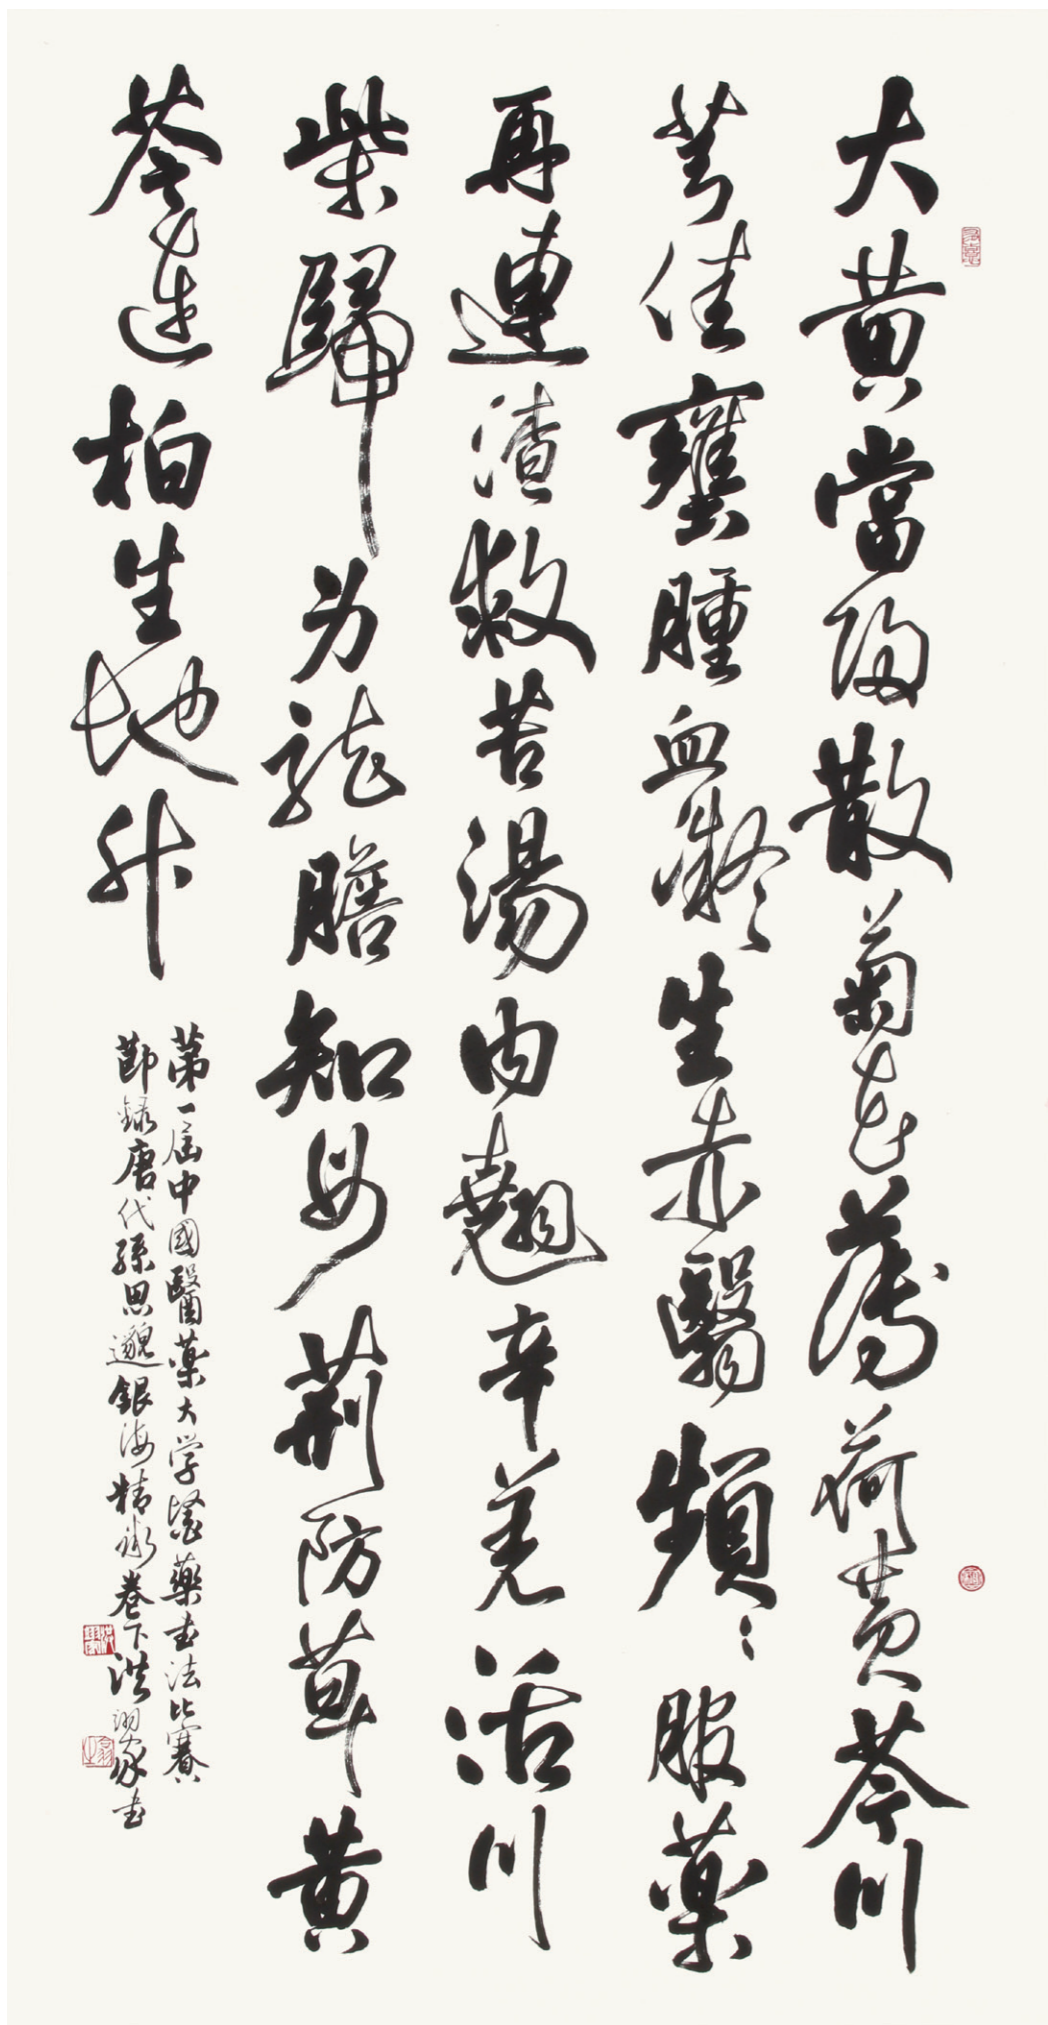 大黃當歸散菊花薄荷黃芩川
芎佳壅腫血凝生赤翳頻頻服藥
再連渣救苦湯內翹辛羌活川
柴歸为龍膽知母荊防草黃
芩连柏生地升
第一屆中國醫藥大学醫藥书法比賽
節錄唐代孫思邈銀海精術卷下洪翊家书